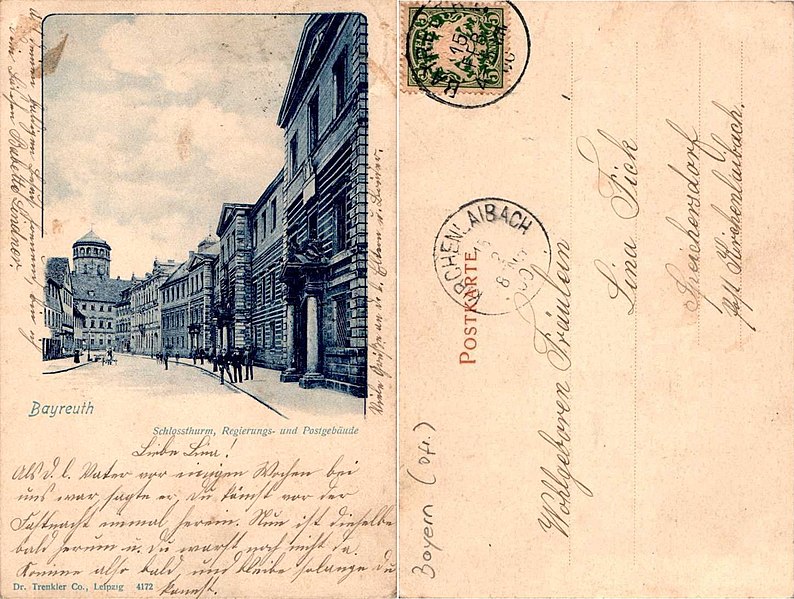 Bayreuth
Schlossthurm, Regierungs- und Postgebäude
Liebe Lina!
Als d. l. Vater vor einigen Wochen bei
uns war, sagte er, Du kämst vor der
Fastnacht einmal herein. Nun ist dieselbe
bald herum u. Du warst noch nicht da.
Komme also bald, und bleibe solange Du
kannst.
Viele Grüße an d. l. Eltern u. Brüder.
Babette Lindner.
Dr. Trenkler Co., Leipzig 4172
5
5
15
KIRCHENLAIBACH
POSTKARTE
Wohlgeboren Fräulein
Lina Fick
Seidersdorf
Post Kirchenlaibach.
Bayern (Ofr.)